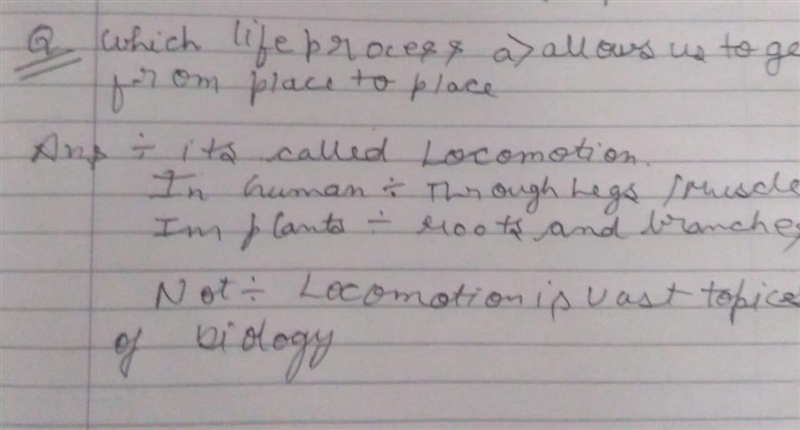 Q Which life process a) allows us to ge
from place to place
Ans ÷ its called Locomotion.
In human ÷ Through Legs / Muscle
Im plants ÷ roots and branches
Not ÷ Locomotion is vast topics
of biology